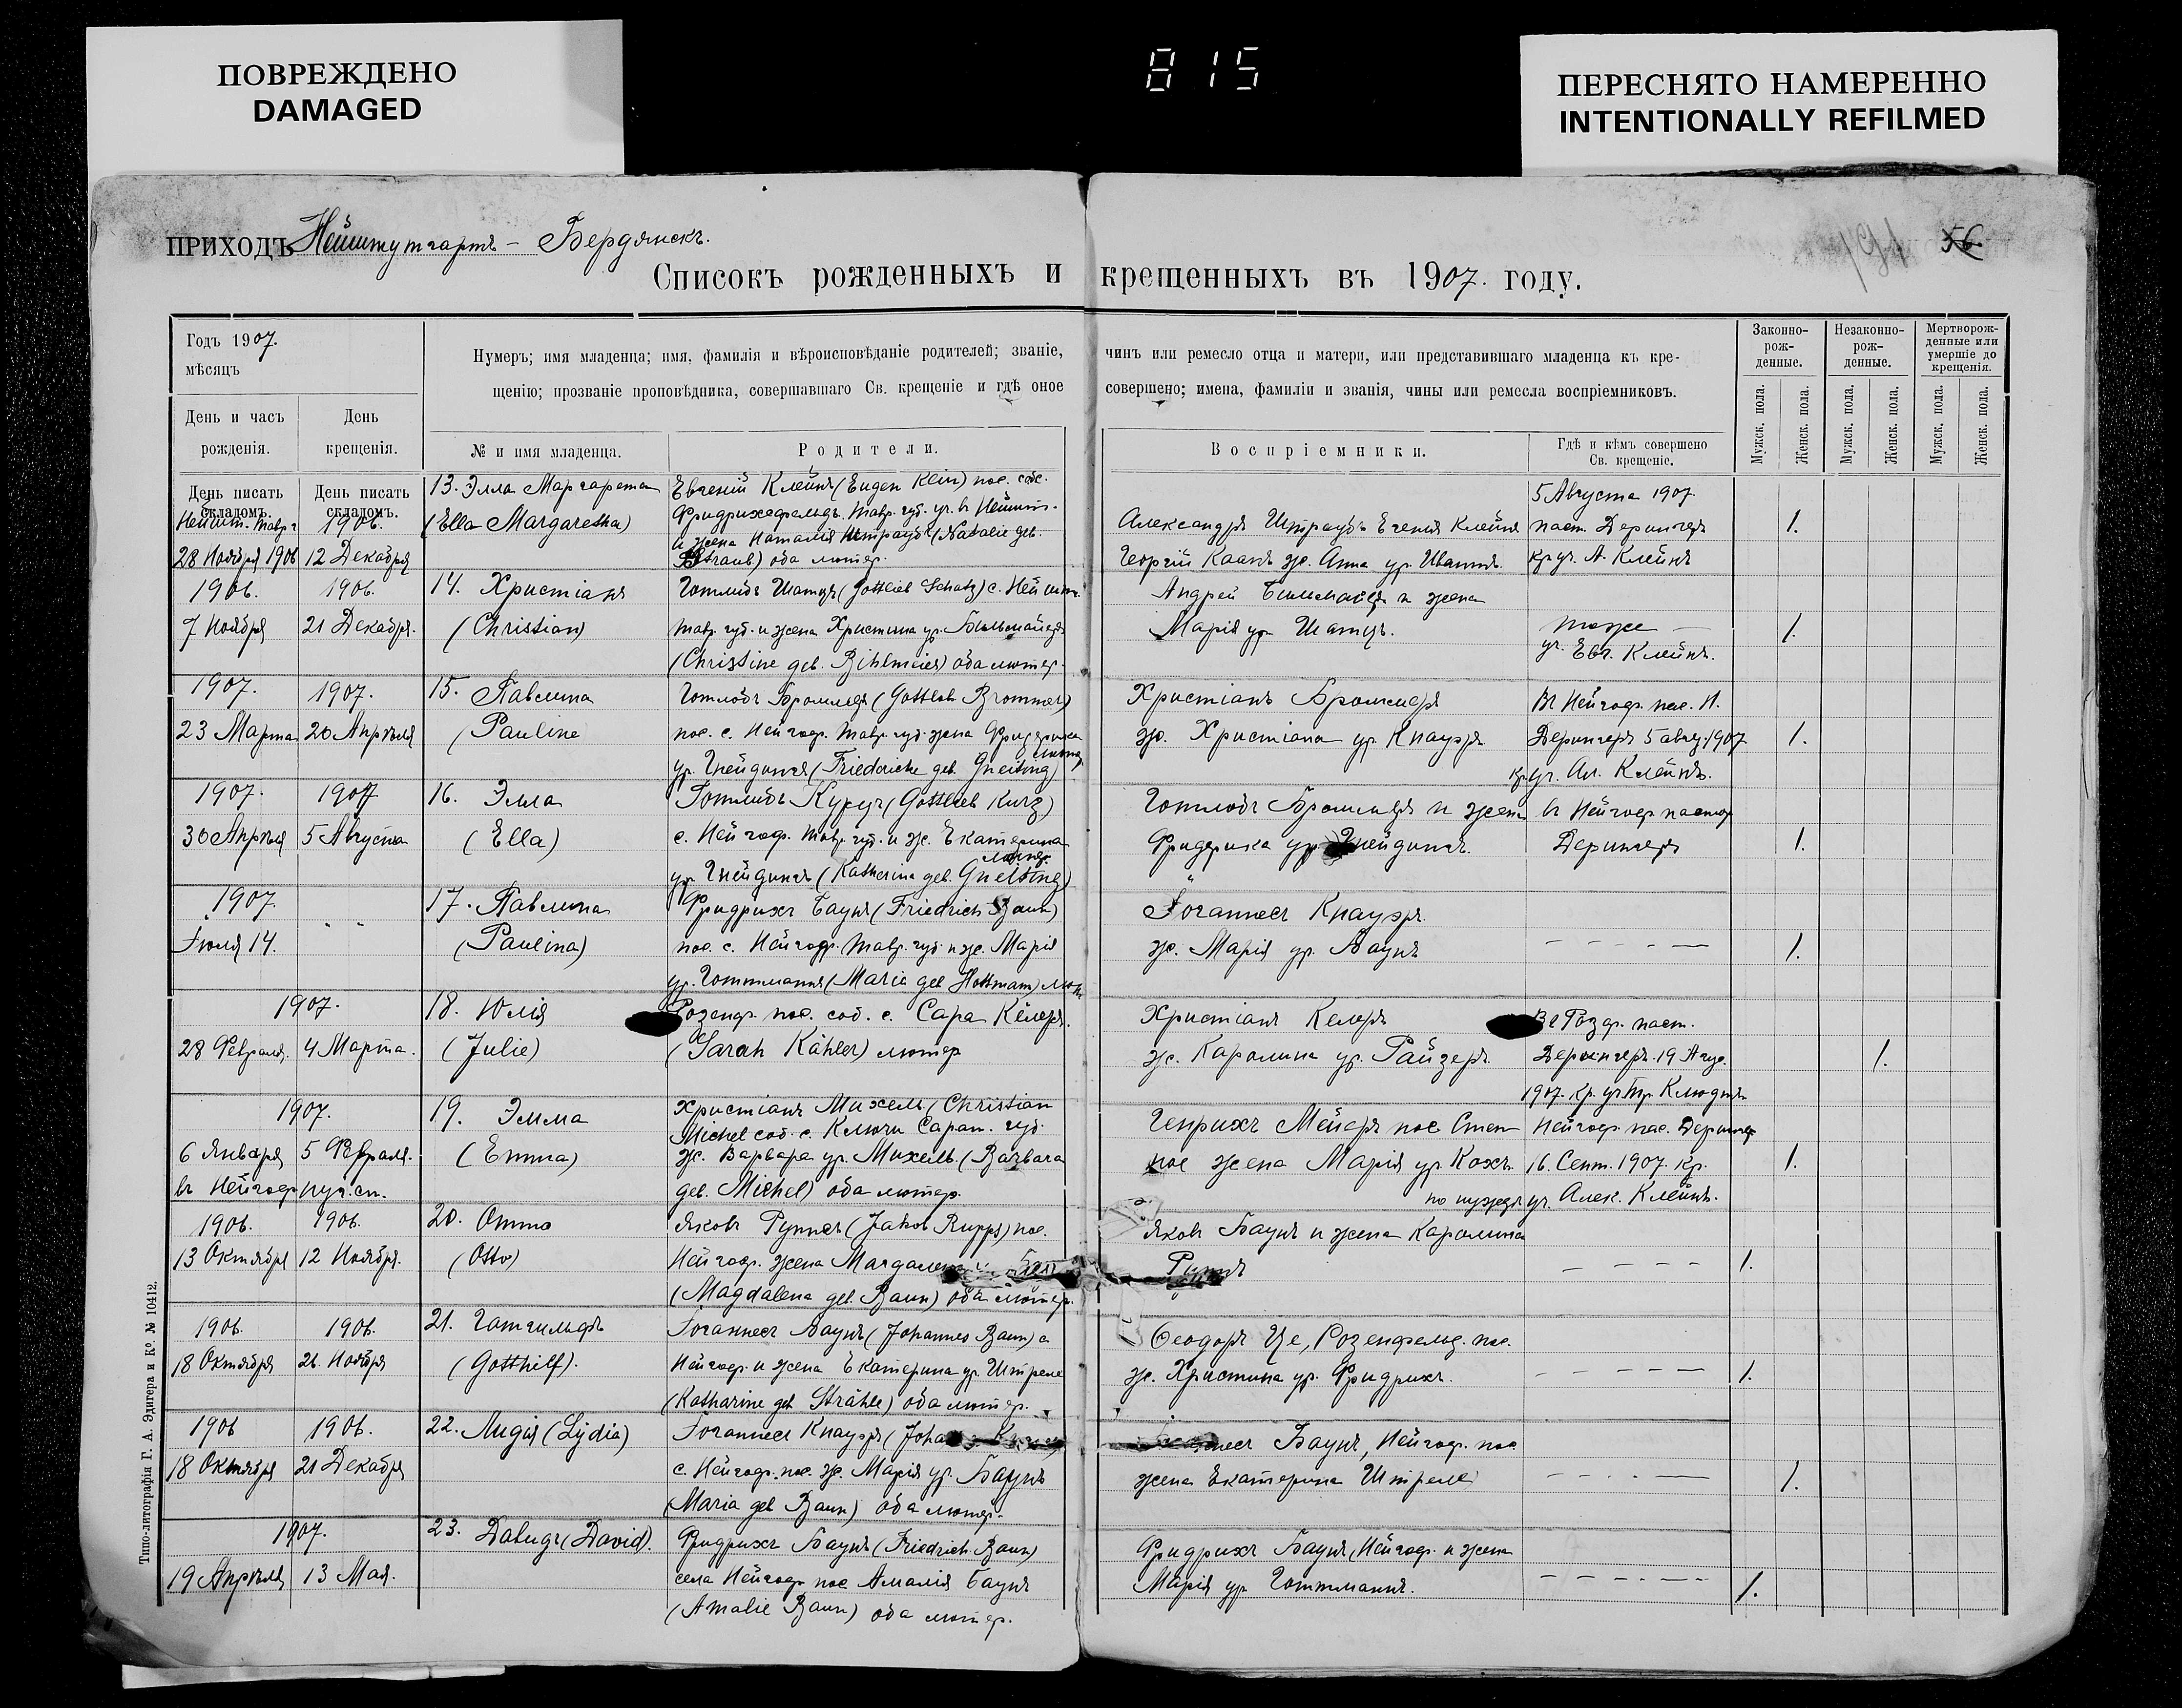 ПОВРЕЖДЕНО
DAMAGED
815
ПЕРЕСНЯТО НАМЕРЕННО
INTENTIONALLY REFILMED
ПРИХОДЪ Нейштутгартъ - Бердянскъ.
191
56.
Списокъ рожденныхъ и крещенныхъ въ 1907. году.
Годъ 1907.
мѣсяцъ
День и часъ рожденія.
День крещенія.
Нумеръ; имя младенца; имя. фамилія и вѣроисповѣданіе родителей; званіе, чинъ или ремесло отца и матери, или представившаго младенца къ кре-
щенію; прозваніе проповѣдника, совершавшаго Св. крещеніе и гдѣ оное совершено; имена, фамиліи и званія, чины или ремесла воспріемниковъ.
№ и имя младенца.
Родители.
Воспріемники.
Гдѣ и кѣмъ совершено
Св. крещеніе.
Законно-
рож-
денные.
Незаконно-
рож-
денные.
Мертворож-
денные или
умершіе до
крещенія.
Мужск. пола.
Женск. пола.
Мужск. пола.
Женск. пола.
Мужск. пола.
Женск. пола.
День писать
складомъ.
День писать
складомъ.
Нейшт. Тавр. г.
28 Ноября 1906
1906.
12 Декабря
13. Элла Маргарета
(Ella Margaretha)
Евгеній Клейнъ (Eugen Klein) пос. соб.
Фридрихсфельдъ. Тавр. губ. уч. въ Нейшт.
и жена Наталія Штраубъ (Natalie geb.
Straub) оба лютер.
Александръ Штраубъ Евгенія Клейнъ
Георгій Каанъ ж. Анна ур.
5 Августа 1907.
паст. Дерингеръ
кр. уч. А. Клейнъ
1.
1906.
7 Ноября
1906.
21 Декабря.
14. Христіанъ
(Christian)
Готлибъ Шатцъ (Gottlieb Schatz) с. Нейшт.
Тавр. губ. и жена Христина ур. Бильмайеръ
(Christine geb. Bihlmeier) оба лютер.
Андрей Бильмайеръ и жена
Марія ур. Шатцъ.
тоже —
уч. Евг. Клейнъ.
1.
1907.
23 Марта
1907.
20 Апрѣля
15. Павлина
(Pauline
Готлобъ Броммеръ (Gottlob Brommer)
пос. с. Нейгоф. Тавр. губ. жена Фридерика
ур. Гнейдингъ (Friedericke geb. Gneiting) лютер.
Христіанъ Броммеръ
ж. Христіана ур. Кнауэръ
Въ Нейгоф. пас. Н.
Дерингеръ 5 авг. 1907
кр. уч. Ал. Клейнъ.
1.
1907.
30 Апрѣля
1907
5 Августа
16. Элла
(Ella)
Готлибъ Курцъ (Gottlieb Kurz)
с. Нейгоф. Тавр. губ. и ж. Екатерина
ур. Гнейдингъ (Katharina geb. Gneiting) лютер.
Готлобъ Броммеръ и жена
Фридерика ур. Гнейдингъ.
въ Нейгоф. пастор
Дерингеръ
1.
1907.
Іюля 14.
17. Павлина
(Paulina)
Фридрихъ Баунъ (Friedrich Baun)
пос. с. Нейгоф. Тавр. губ. и ж. Марія
ур. Готтманнъ (Maria geb. Hottmann) лют.
Іоганнесъ Кнауэръ.
ж. Марія ур. Баунъ
- - - - —
1.
1907.
28 Февраля.
4 Марта.
18. Юлія
(Julie)
Розенф. пос. соб. с. Сара Кёлеръ.
(Sarah Kähler) лютер
Христіанъ Келеръ
ж. Каролина ур. Райзеръ
Въ Розф. паст.
Дерингеръ. 19 Авг.
1907. кр. уч. Клюдтъ
1.
1907.
6 Января
въ Нейгоф.
5 Февраля.
19. Эмма
(Emma)
Христіанъ Михель (Christian
Michel соб. с. Ключи Сарат. губ.
ж. Варвара ур. Михель (Barbara
geb. Michel) оба лютер.
Генрихъ Мейеръ пос. Степ
пос жена Марія ур. Кохъ.
Нейгоф. пас. Дерингер
16. Сент. 1907. Кр.
по нуждѣ уч. Алек. Клейнъ.
1.
1906.
13 Октября
1906.
12 Ноября.
20. Отто
(Otto)
Яковъ Руппъ (Jakob Rupp) пос.
Нейгоф. жена Магдалена Баунъ
(Magdalena geb. Baun) оба лютер.
Яковъ Баунъ и жена Каролина
Руппъ
- - - - —
1.
1906.
18 Октября
1906.
26. Ноября
21. Готгильфъ
(Gotthilf).
Іоганнесъ Баунъ (Johannes Baun) с
Нейгоф. и жена Екатерина ур. Штреле
(Katharine geb. Strähle) оба лютер.
Ѳеодоръ Це, Розенфельд. пос.
ж. Христина ур. Фридрихъ.
- - - - —
1.
1906
18 Октября
1906.
21 Декабря
22. Лидія (Lydia)
Іоганнесъ Кнауэръ (Joha
с. Нейгоф. пос. ж. Марія ур. Баунъ
(Maria geb. Baun) оба лютер.
Баунъ, Нейгоф. пос
жена Екатерина Штреле
- - - —
1.
1907.
19 Апрѣля
13 Мая.
23. Давидъ (David).
Фридрихъ Баунъ (Friedrich Baun)
села Нейгоф пос Амалія Баунъ
(Amalie Baun) оба лютер.
Фридрихъ Баунъ, Нейгоф. и жена
Марія ур. Готтманнъ.
- - - - - -
1.
Типо-литографія Г. А. Эдигера и Ко. № 10412.